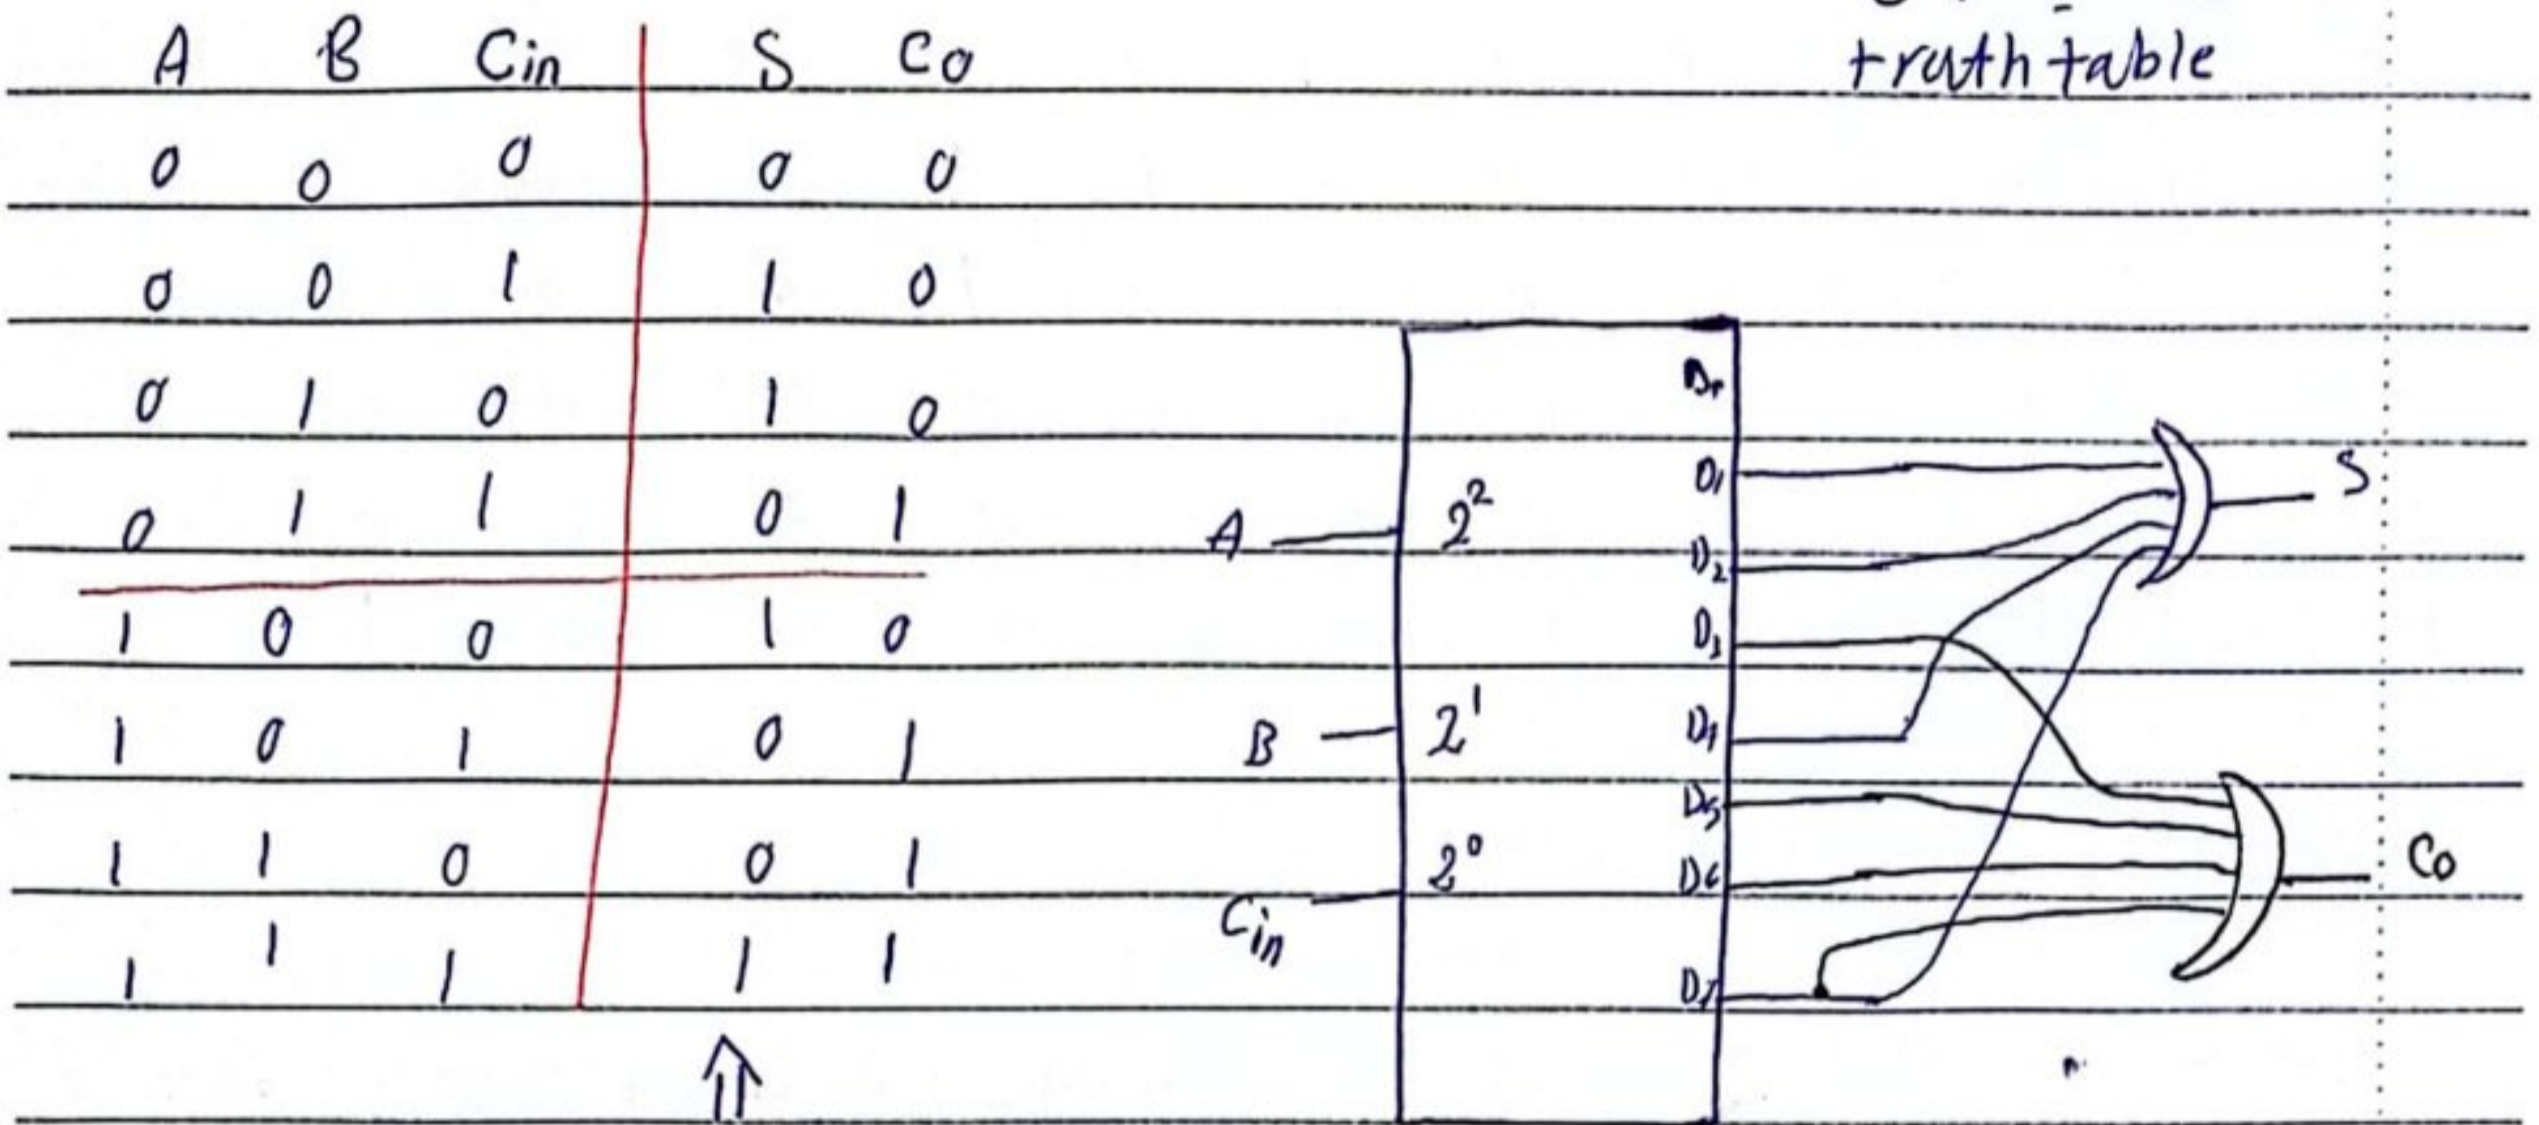 truth table
A B Cin S Co
0 0 0 0 0
0 0 1 1 0
0 1 0 1 0
0 1 1 0 1
1 0 0 1 0
1 0 1 0 1
1 1 0 0 1
1 1 1 1 1
A
B
Cin
2²
2¹
2⁰
D1
D2
D3
D5
D6
D7
S
Co